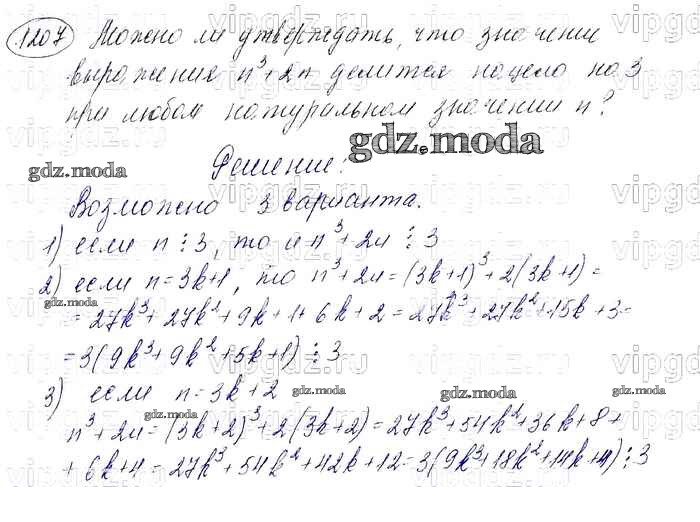 1207 Можно ли утверждать, что значение
выражения n³+2n делится нацело на 3
при любом натуральном значении n?
gdz.moda
Решение:
gdz.moda
Возможно 3 варианта.
1) если n ⋮ 3, то и n³+2n ⋮ 3
2) если n=3k+1, то n³+2n=(3k+1)³+2(3k+1)=
gdz.moda
=27k³+27k²+9k+1+6k+2=27k³+27k²+15k+3=
=3(9k³+9k²+5k+1) ⋮ 3
3) если n=3k+2
gdz.moda
gdz.moda
gdz.moda
gdz.moda
n³+2n=(3k+2)³+2(3k+2)=27k³+54k²+36k+8+
+6k+4=27k³+54k²+42k+12=3(9k³+18k²+14k+4) ⋮ 3